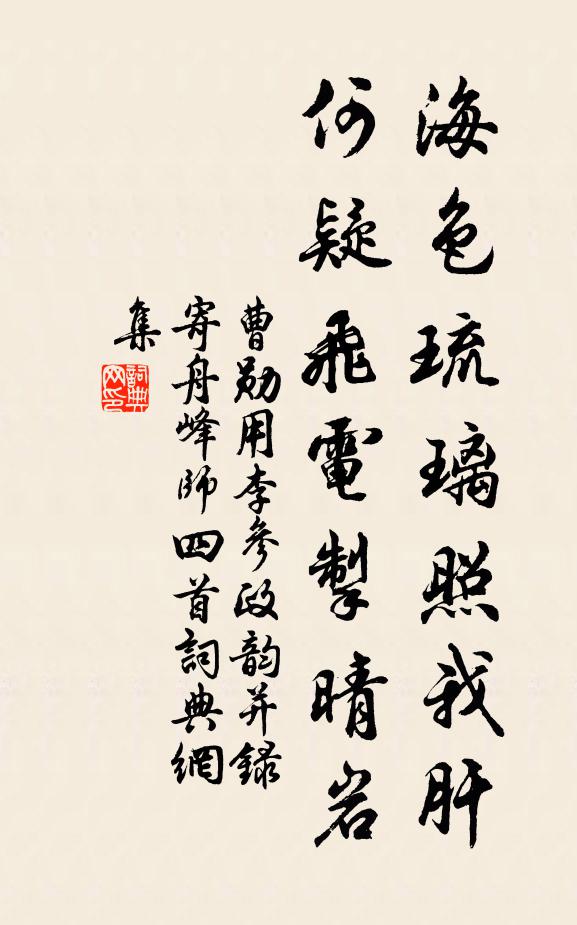 海色琉璃照我肝
何疑飛電掣晴岩
曹勛用李參政韵并録
寄舟峰師四首詞典網
集
詞典
网印